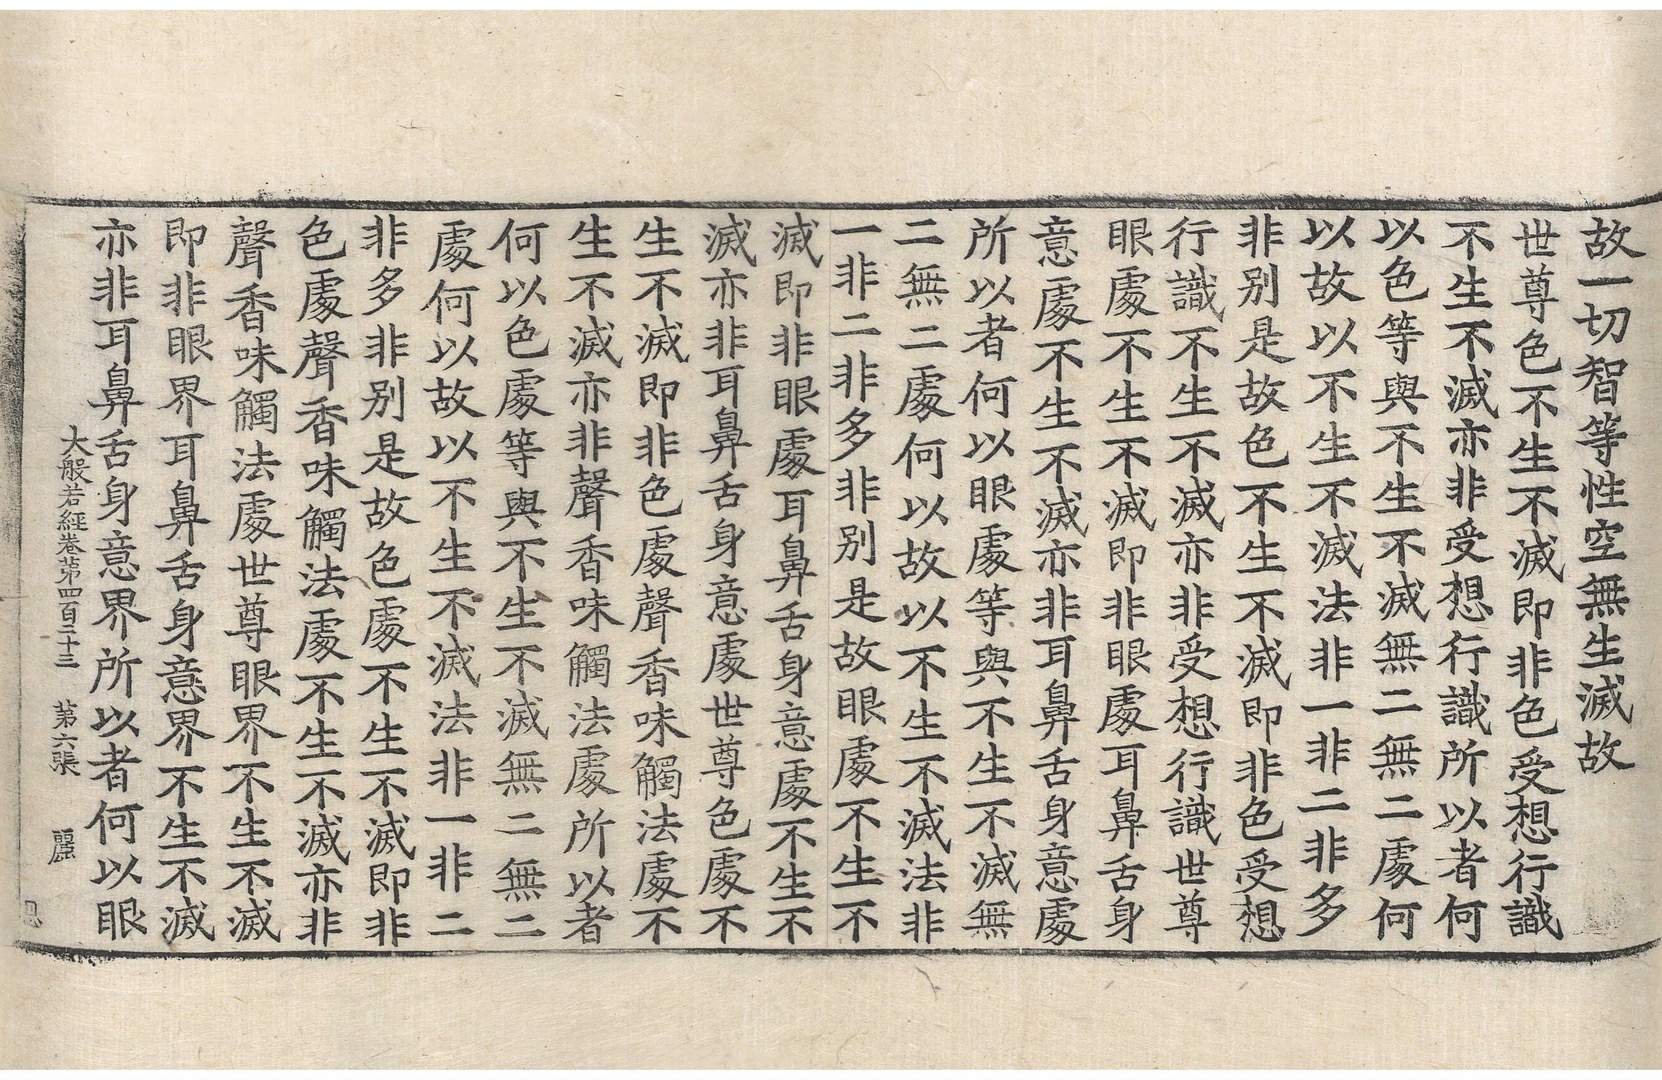 故一切智等性空無生滅故
世尊色不生不滅即非色受想行識
不生不滅亦非受想行識所以者何
以色等與不生不滅無二無二處何
以故以不生不滅法非一非二非多
非别是故色不生不滅即非色受想
行識不生不滅亦非受想行識世尊
眼處不生不滅即非眼處耳鼻舌身
意處不生不滅亦非耳鼻舌身意處
所以者何以眼處等與不生不滅無
二無二處何以故以不生不滅法非
一非二非多非别是故眼處不生不
滅即非眼處耳鼻舌身意處不生不
滅亦非耳鼻舌身意處世尊色處不
生不滅即非色處聲香味觸法處不
生不滅亦非聲香味觸法處所以者
何以色處等與不生不滅無二無二
處何以故以不生不滅法非一非二
非多非别是故色處不生不滅即非
色處聲香味觸法處不生不滅亦非
聲香味觸法處世尊眼界不生不滅
即非眼界耳鼻舌身意界不生不滅
亦非耳鼻舌身意界所以者何以眼
大般若經卷第四百二十三 第六張 麗